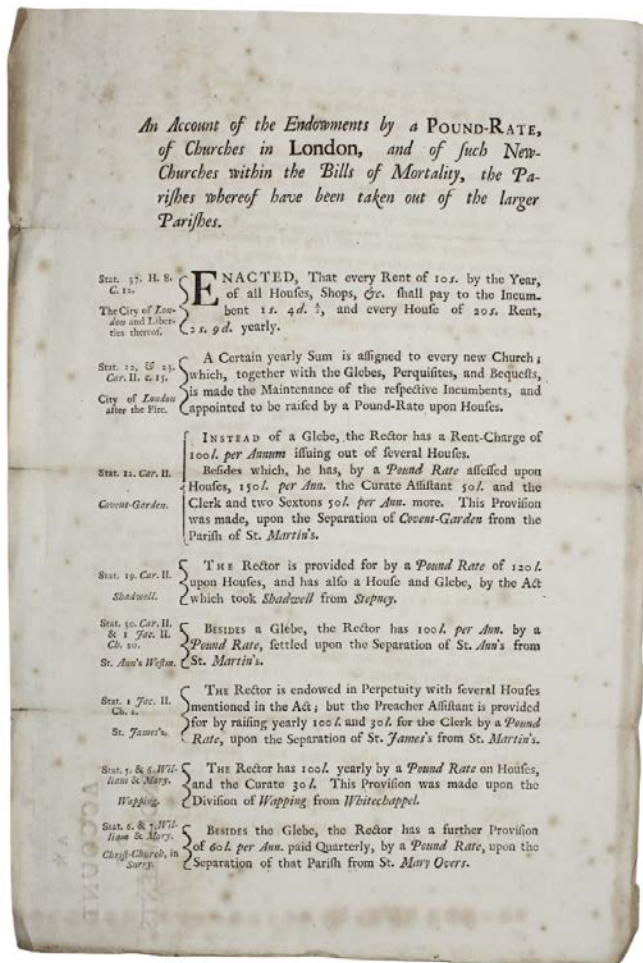 An Account of the Endowments by a POUND-RATE,
of Churches in London, and of ſuch New-
Churches within the Bills of Mortality, the Pa-
riſhes whereof have been taken out of the larger
Pariſhes.
Stat. 37. H. 8.
C. 12.
The City of Lon-
don and Liber-
ties thereof.
ENACTED, That every Rent of 10s. by the Year,
of all Houſes, Shops, &c. ſhall pay to the Incum-
bent 1s. 4d. ½, and every Houſe of 20s. Rent,
2s. 9d. yearly.
Stat. 22, & 23.
Car. II. c. 15.
City of London
after the Fire.
A Certain yearly Sum is aſſigned to every new Church;
which, together with the Glebes, Perquiſites, and Bequeſts,
is made the Maintenance of the reſpective Incumbents, and
appointed to be raiſed by a Pound-Rate upon Houſes.
Stat. 12. Car. II.
Covent-Garden.
INSTEAD of a Glebe, the Rector has a Rent-Charge of
100l. per Annum iſſuing out of ſeveral Houſes.
Beſides which, he has, by a Pound Rate aſſeſſed upon
Houſes, 150l. per Ann. the Curate Aſſiſtant 50l. and the
Clerk and two Sextons 50l. per Ann. more. This Proviſion
was made, upon the Separation of Covent-Garden from the
Pariſh of St. Martin's.
Stat. 19. Car. II.
Shadwell.
THE Rector is provided for by a Pound Rate of 120l.
upon Houſes, and has alſo a Houſe and Glebe, by the Act
which took Shadwell from Stepney.
Stat. 30. Car. II.
& 1 Jac. II.
Ch. 20.
St. Ann's Weſtm.
BESIDES a Glebe, the Rector has 100l. per Ann. by a
Pound Rate, ſettled upon the Separation of St. Ann's from
St. Martin's.
Stat. 1 Jac. II.
Ch. 2.
St. James's.
THE Rector is endowed in Perpetuity with ſeveral Houſes
mentioned in the Act; but the Preacher Aſſiſtant is provided
for by raiſing yearly 100l. and 30l. for the Clerk by a Pound
Rate, upon the Separation of St. James's from St. Martin's.
Stat. 5. & 6. Wil-
liam & Mary.
Wapping.
THE Rector has 100l. yearly by a Pound Rate on Houſes,
and the Curate 30l. This Proviſion was made upon the
Diviſion of Wapping from Whitechappel.
Stat. 6. & 7. Wil-
liam & Mary.
Chriſt-Church, in
Surry.
BESIDES the Glebe, the Rector has a further Proviſion
of 60l. per Ann. paid Quarterly, by a Pound Rate, upon the
Separation of that Pariſh from St. Mary Overs.
ACCOUNT